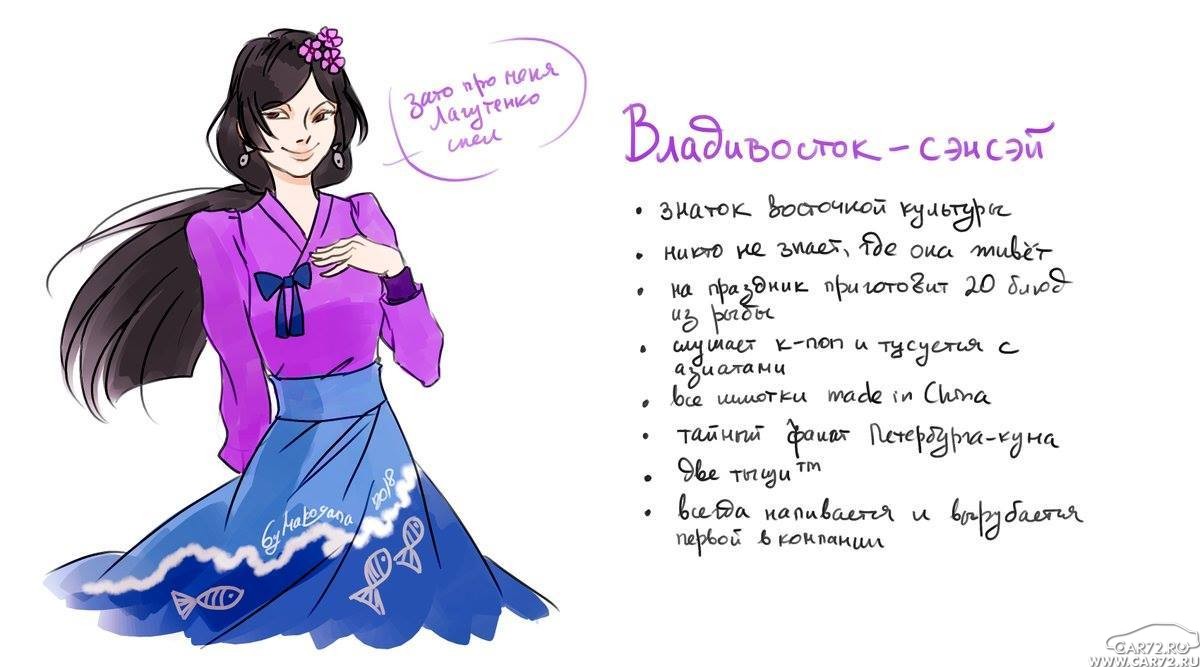 зато про меня
Лагутенко
спел
Владивосток - сэнсэй
• знаток восточной культуры
• никто не знает, где она живёт
• на праздник приготовит 20 блюд
из рыбы
• слушает к-поп и тусуется с
азиатами
• все шмотки made in China
• тайный фанат Петербурга-куна
• две тыщи™
• всегда напивается и вырубается
первой в компании
by Makosana 2018
CAR72.RU
WWW.CAR72.RU